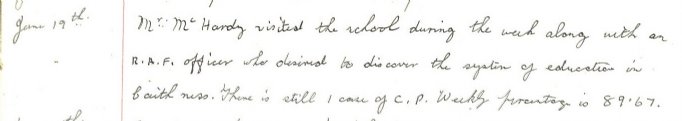 June 19th. Mr. McHardy visited the school during the week along with an
" R.A.F. officer who desired to discover the system of education in
Caithness. There is still 1 case of C.P. Weekly percentage is 89.67.